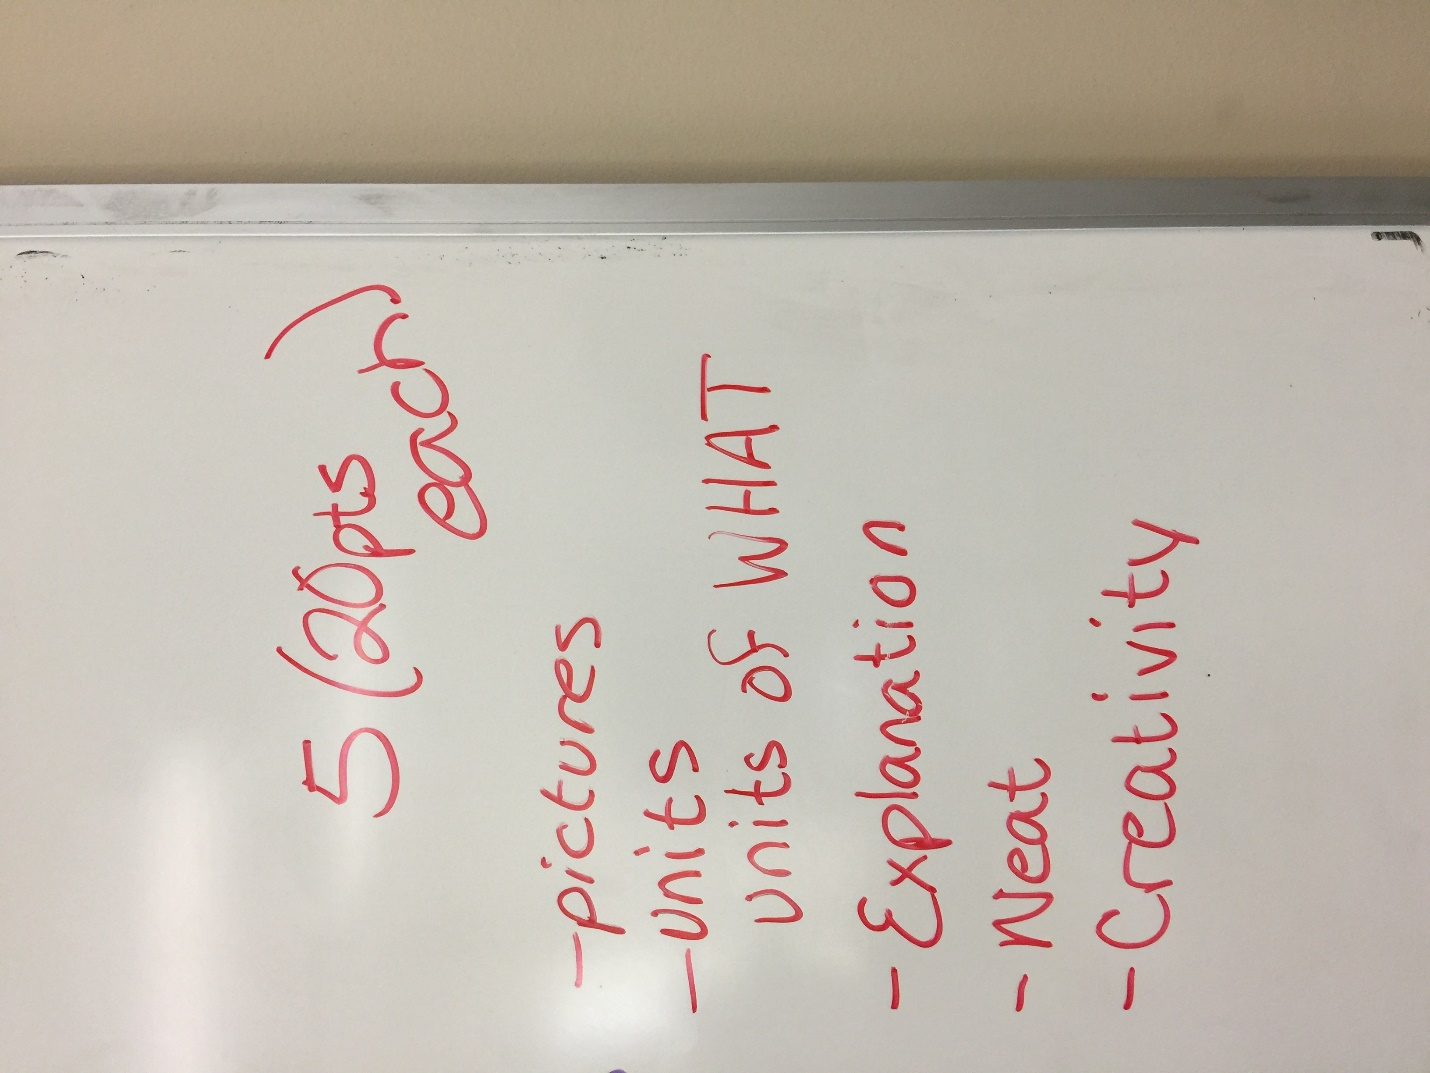 5 (20pts
each)
- pictures
- units
units of WHAT
- Explanation
- Neat
- Creativity